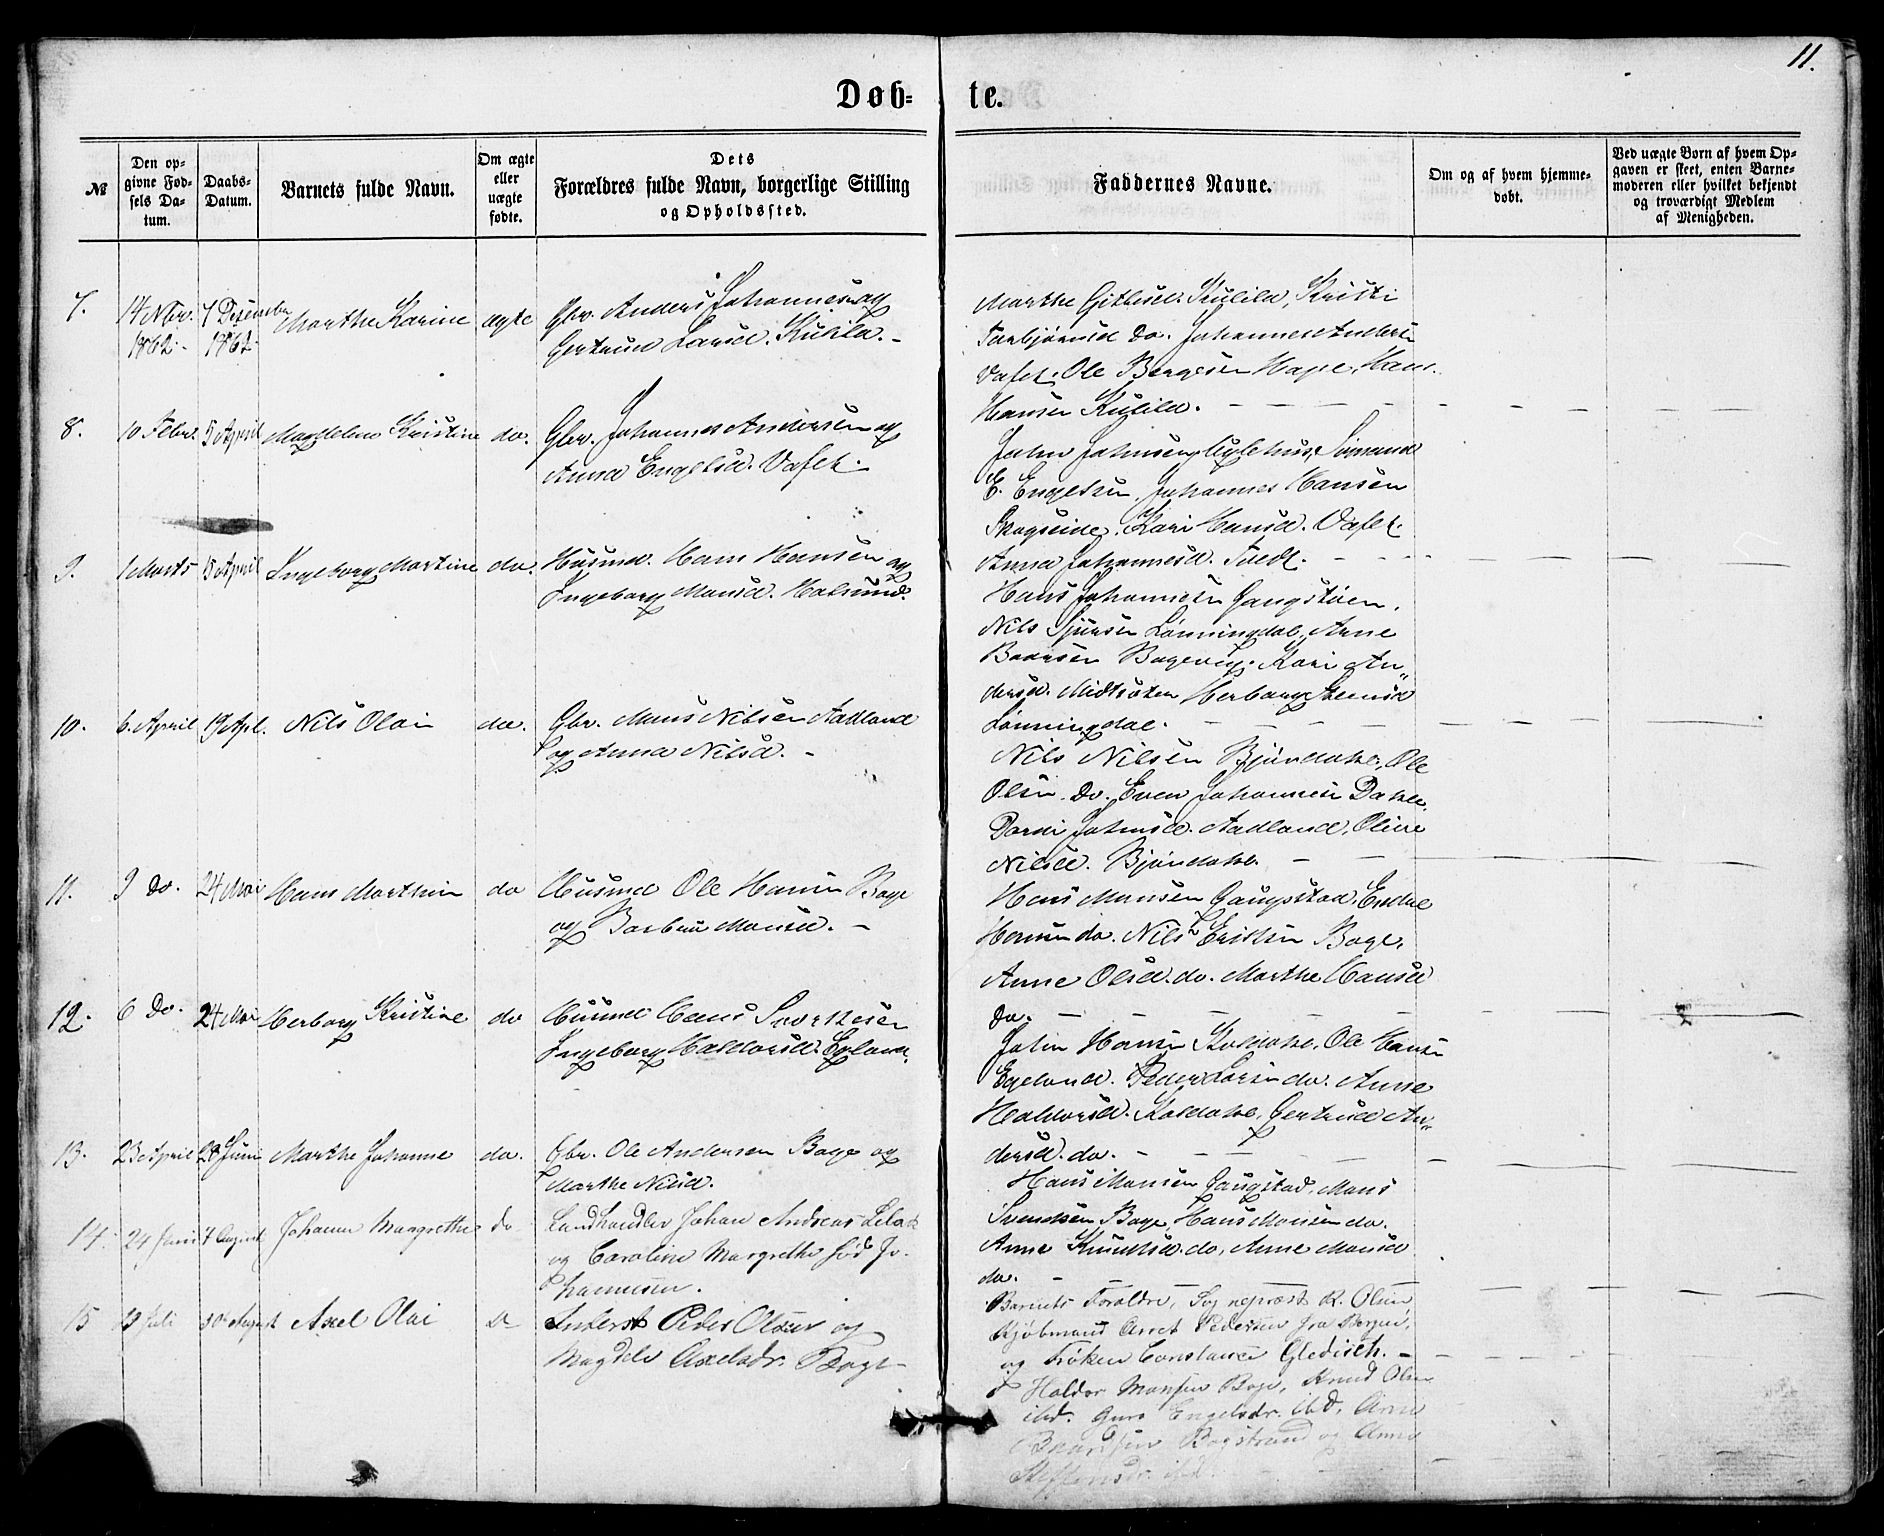 11.
Døb=
te.
№
Den op=
givne Fød=
sels Da=
tum.
Daabs=
Datum.
Barnets fulde Navn.
Om ægte
eller
uægte
fødte.
Dets
Forældres fulde Navn, borgerlige Stilling
og Opholdssted.
Faddernes Navne.
Om og af hvem hjemme=
døbt.
Ved uægte Børn af hvem Op=
gaven er skeet, enten Barne=
moderen eller hvilket bekjendt
og troværdigt Medlem
af Menigheden.
7.
14 Nbr.
1862.
7 Desember
1862.
Marthe Karine
ægte
Gbr. Anders Johannesen og
Gertrud Larsd. Kulild.
Marthe Githlesd. Kulild, Kristi
Torbjørnsd do. Johannes Anders.
Vafet. Ole Børgesen Hage, Hans
Hansen Kulild.
8.
10 Febr.
5 April
Magdelene Kristine
do.
Gbr. Johannes Andersen og
Anna Engelsd. Vafet.
John Johnsen Røglehus, Simund
E. Engelsen, Johannes Hansen
Skogseide, Kari Hansd. Vafet.
Anna Johannesd. Tvedt.
9.
1 Marts
15 April
Ingeborg Martine
do.
Husmd. Hans Hansen og
Ingeborg Monsd. Halsund.
Hans Johannesen Gangstøen.
Nils Sjursen Lønningdal, Arne
Baarsen Bogevig. Kari An„
dersd. Midtsæter Herborg
Lønningdal.
10.
6. April
19 Apl.
Nils Olai
do.
Gbr. Mons Nilsen Aadland
og Anna Nilsd.
Nils Nilsen Bjøndahl, Ole
Olsen do. Even Johannesen Dahle.
Dordi Johnsd. Aadland, Oline
Nilsd. Bjøndahl.
11.
9 Do.
24 Mai
Hans Marthin
do
Husmd Ole Hansen Bage
og Barbru Monsd.
Hans Monsen Gangstad, Endre
Hansen do. Nils Eriksen Bage,
Anne Olsd. do. Marthe Hansd
do.
12.
6 Do.
24 Mai
Herborg Kristine
do
Husmd Hans Snorkesen
Ingeborg Haldorsd. Egland.
John Hansen Koldahl, Ole Hansen
Egeland. Peder Larsen do. Anne
Haldorsd. Koldahl, Gertrud An„
dersd. do.
13.
23 April
28 Juni
Marthe Johanne
do.
Gbr. Ole Andersen Bage og
Marthe Nilsd.
Hans Monsen Gangstad, Mons
Svendsen Bage, Hans Monsen do.
Anne Knudsd. do, Anne Monsd
do.
14.
24 Juni
7 August
Johanne Margrethe
do
Landhandler Johan Andreas
og Caroline Margrethe fød Jo-
hannesen.
Barnets Forældre, Sognepræst R. Olsen,
Kjøbmand Arnet Pedersen fra Bergen,
og Frøken Constance Gleditsch.
15
13 Juli
30 August
Axel Olai
do
Inderst Peder Olsen og
Magdele Axelsdr. Bage
Haldor Monsen Bage, Knud Olsen
ibd. Guro Engelsdr. ibd, Arne
Baardsen Bogstrand og Anne
Steffensdr. ibd.